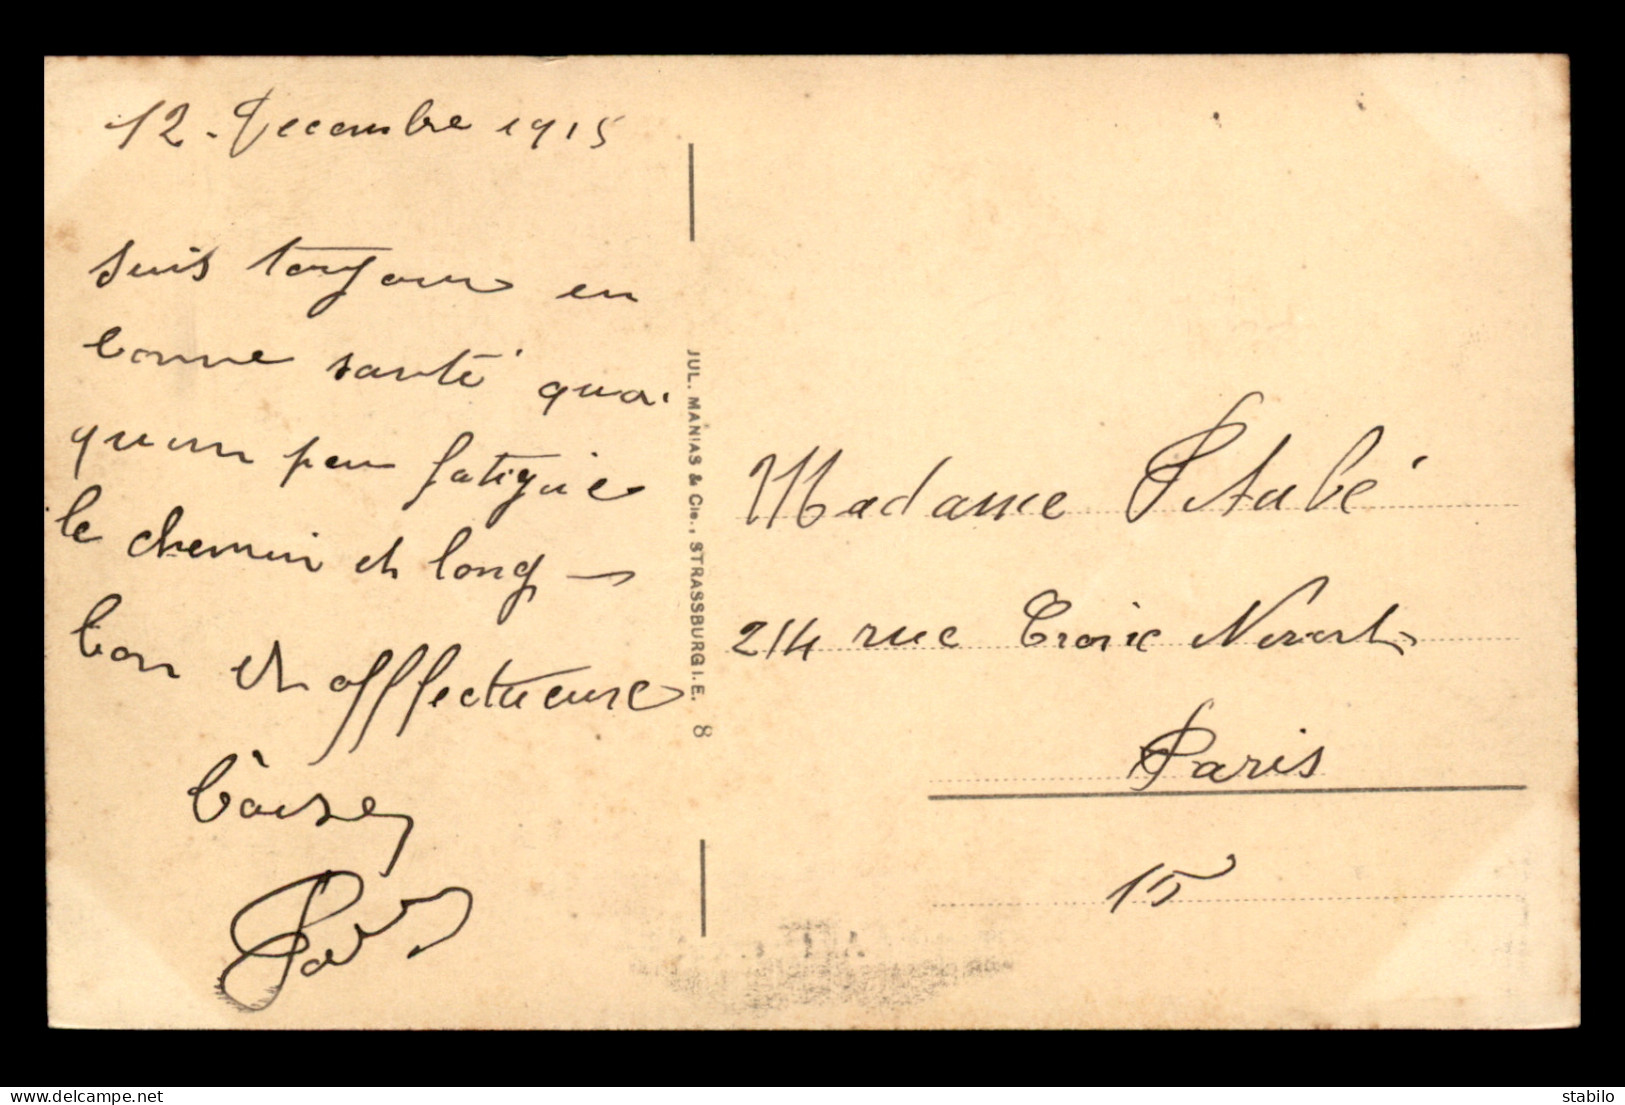 12. Decembre 1915
suis toujours en
bonne santé quoi
qu'un peu fatiguée
le chemin et long
bon et affectueuse
baiser
JUL. MANIAS & Cie., STRASSBURG I. E. 8
Madame
214 rue Croix Nivert
Paris
15
delcampe.net
stabilo